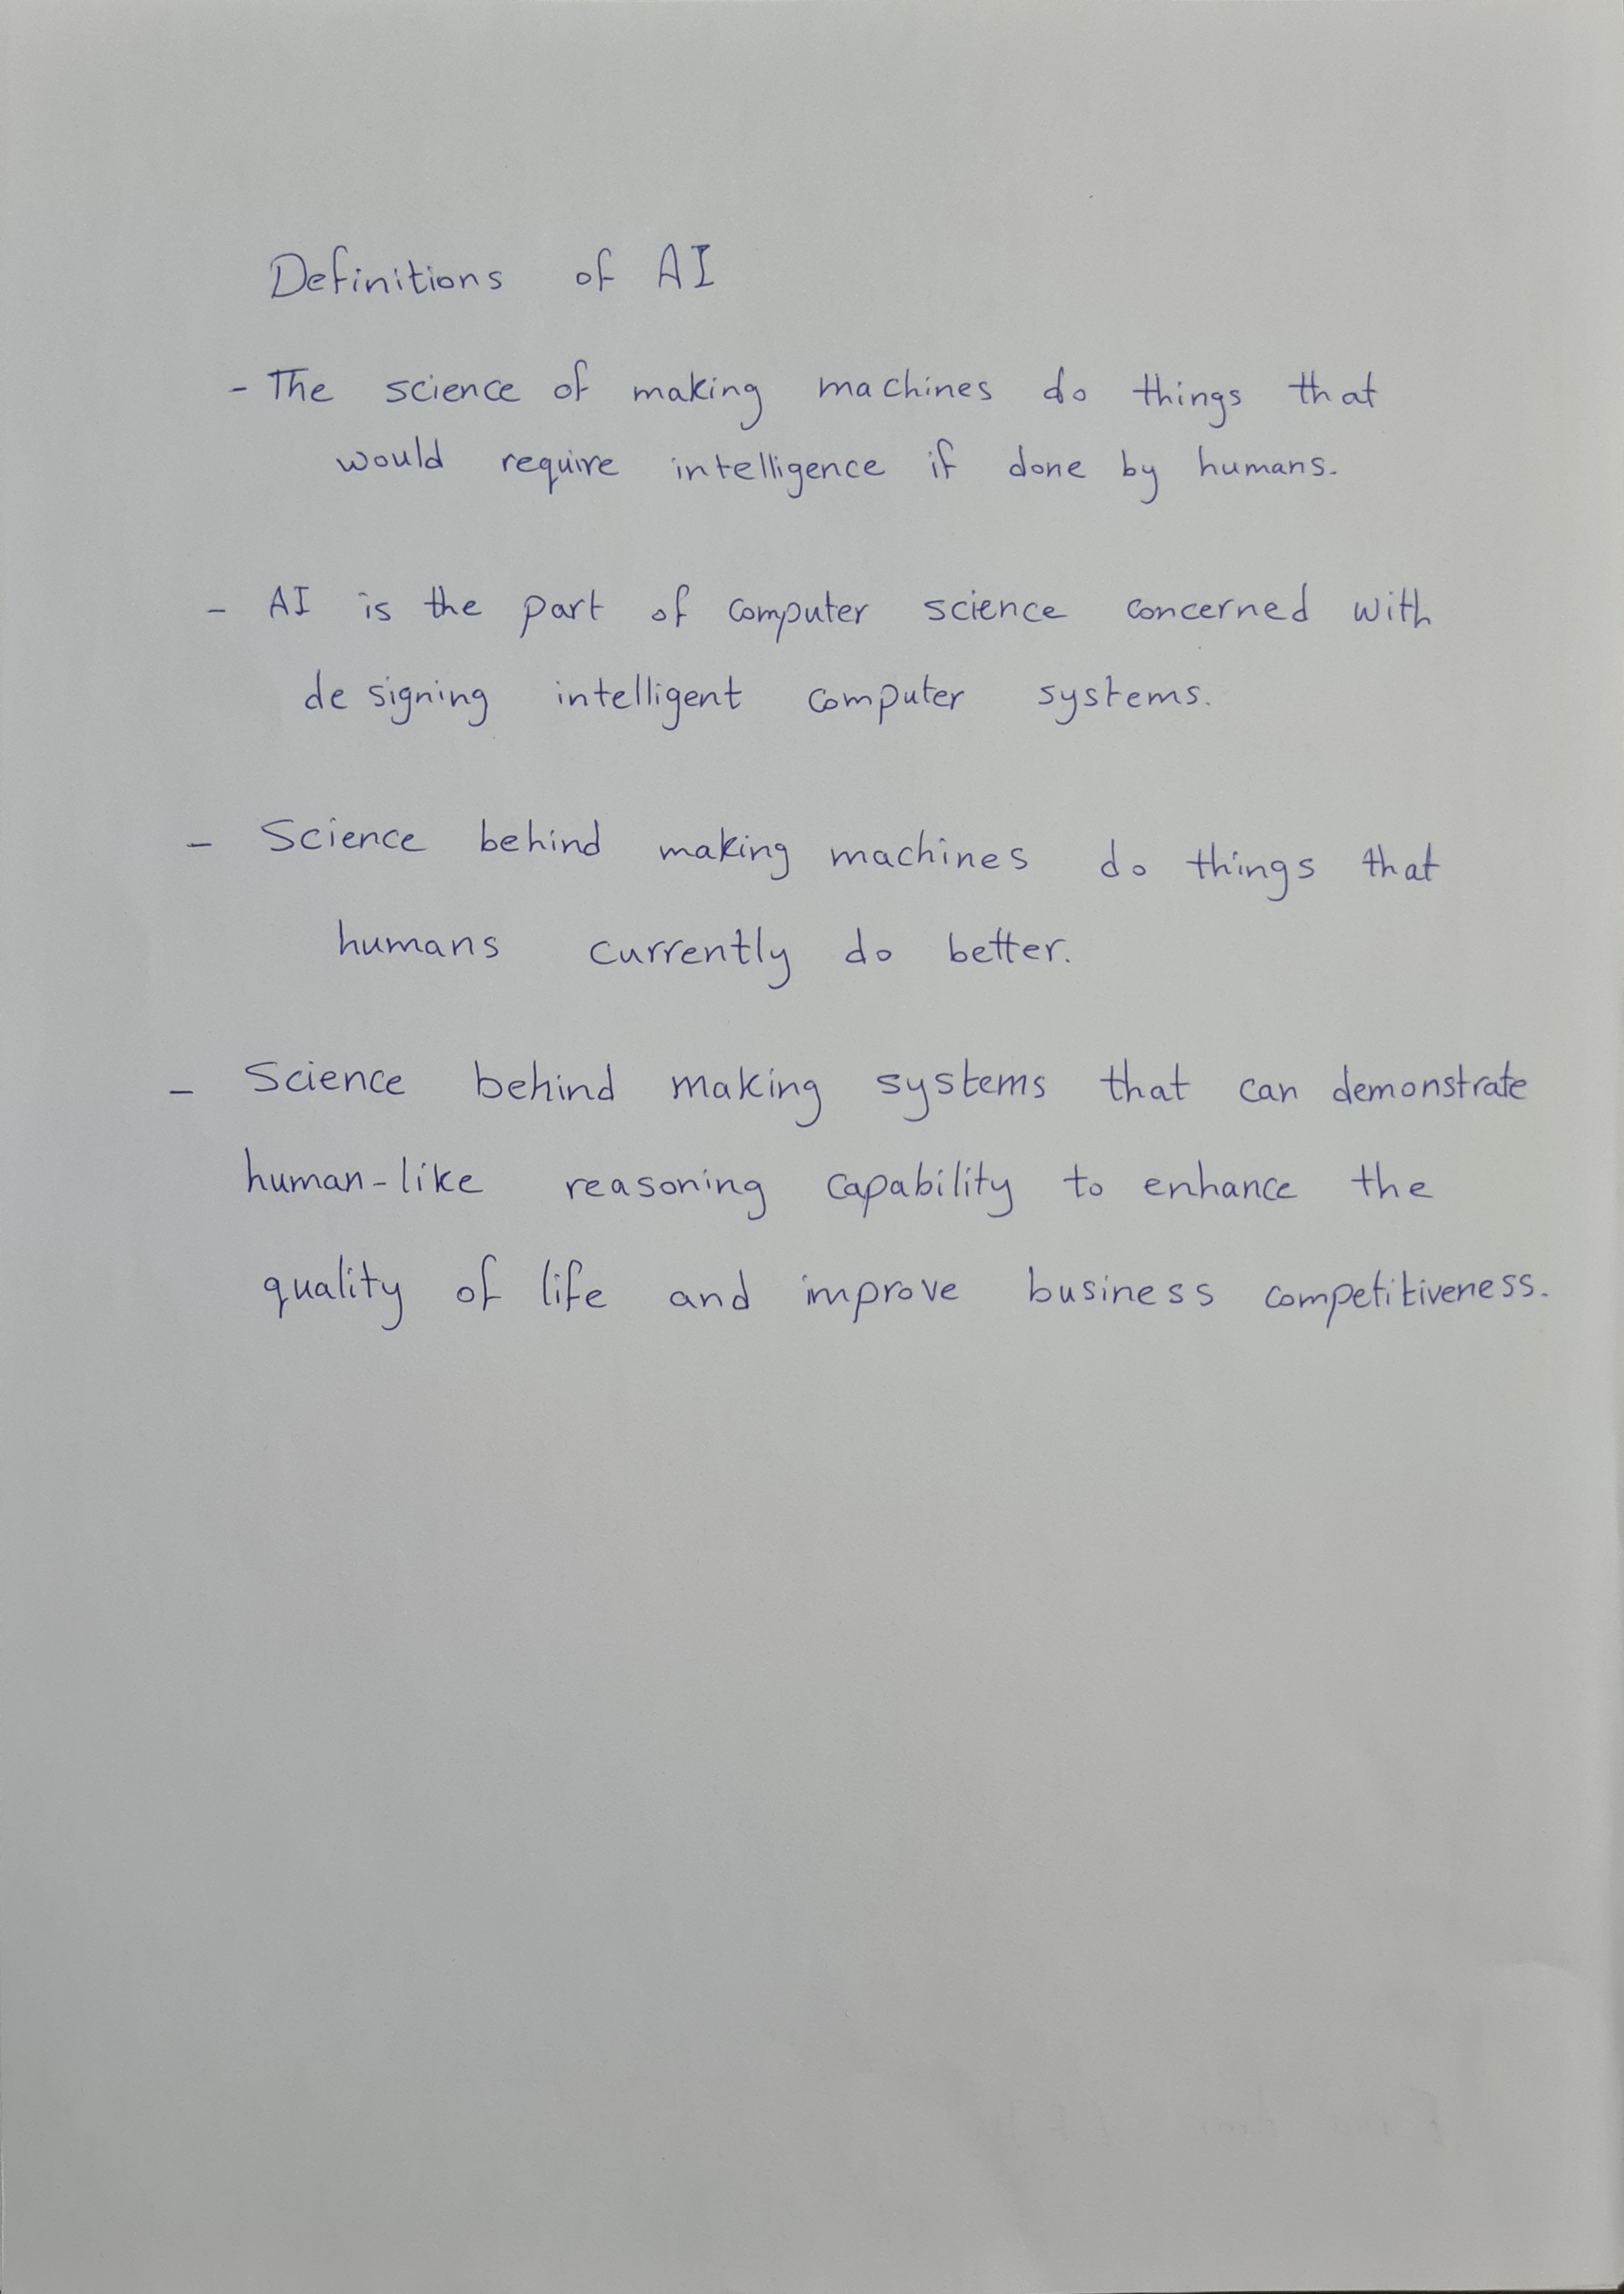 Definitions of AI
- The science of making machines do things that
would require intelligence if done by humans.
- AI is the part of computer science concerned with
designing intelligent computer systems.
- Science behind making machines do things that
humans currently do better.
- Science behind making systems that can demonstrate
human-like reasoning capability to enhance the
quality of life and improve business competitiveness.